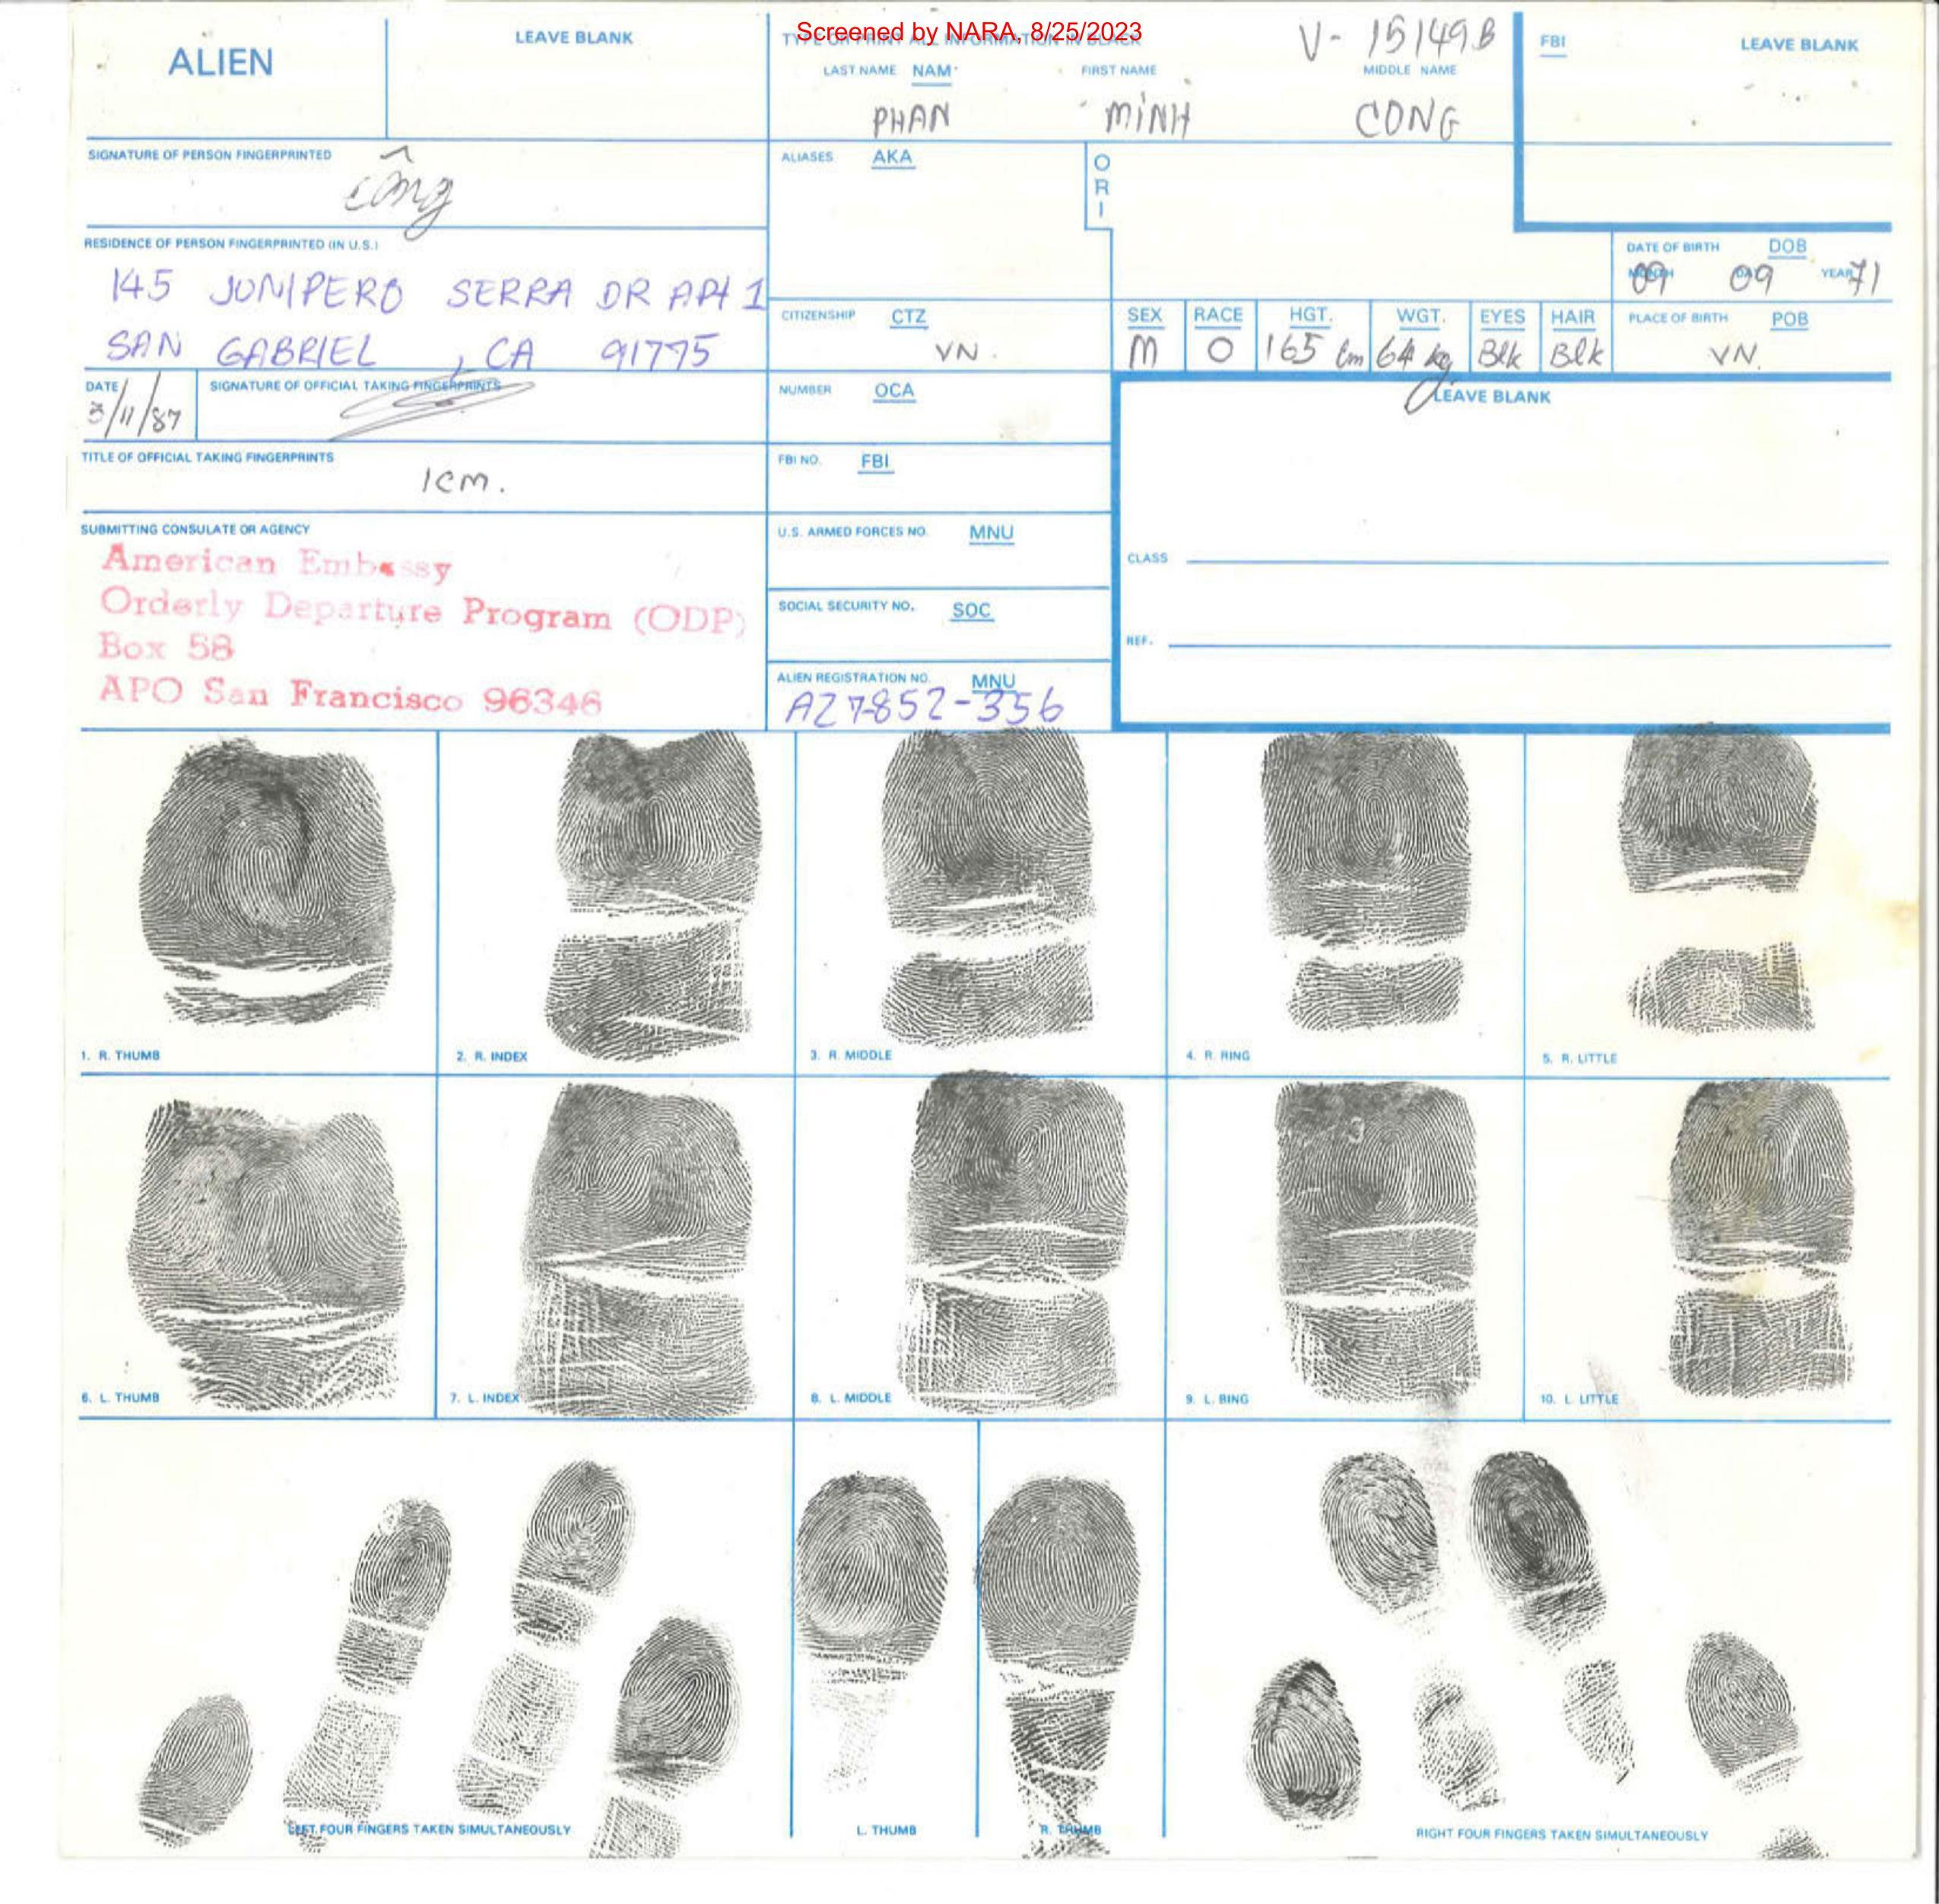 Screened by NARA, 8/25/2023
ALIEN
LEAVE BLANK
TYPE OR PRINT ALL INFORMATION IN BLACK
V- 15149B
LAST NAME NAM FIRST NAME MIDDLE NAME
PHAN MINH CONG
FBI LEAVE BLANK
SIGNATURE OF PERSON FINGERPRINTED
công
ALIASES AKA
ORI
RESIDENCE OF PERSON FINGERPRINTED (IN U.S.)
145 JUNIPERO SERRA DR APt 1
SAN GABRIEL, CA 91775
DATE OF BIRTH DOB
MONTH DAY YEAR
09 09 71
CITIZENSHIP CTZ
VN.
SEX RACE HGT. WGT. EYES HAIR
M O 165 cm 64 kg Blk Blk
PLACE OF BIRTH POB
VN.
DATE
3/11/87
SIGNATURE OF OFFICIAL TAKING FINGERPRINTS
NUMBER OCA
LEAVE BLANK
TITLE OF OFFICIAL TAKING FINGERPRINTS
ICM.
FBI NO. FBI
SUBMITTING CONSULATE OR AGENCY
American Embassy
Orderly Departure Program (ODP)
Box 58
APO San Francisco 96346
U.S. ARMED FORCES NO. MNU
CLASS
SOCIAL SECURITY NO. SOC
REF.
ALIEN REGISTRATION NO. MNU
A27852-356
1. R. THUMB
2. R. INDEX
3. R. MIDDLE
4. R. RING
5. R. LITTLE
6. L. THUMB
7. L. INDEX
8. L. MIDDLE
9. L. RING
10. L. LITTLE
LEFT FOUR FINGERS TAKEN SIMULTANEOUSLY
L. THUMB
R. THUMB
RIGHT FOUR FINGERS TAKEN SIMULTANEOUSLY